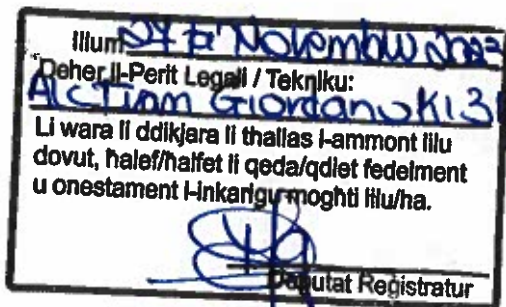 Illum 27 ta' Novembru 2023
Deher il-Perit Legali / Tekniku:
AIC Tiam Giordano KI 3
Li wara li ddikjara li tħallas l-ammont lilu
dovut, ħalef/ħalfet li qeda/qdiet fedelment
u onestament l-inkarigu mogħti lilu/ha.
Deputat Reġistratur